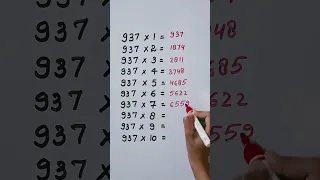 937 × 1 = 937
937 × 2 = 1874
937 × 3 = 2811
937 × 4 = 3748
937 × 5 = 4685
937 × 6 = 5622
937 × 7 = 6559
937 × 8 =
937 × 9 =
937 × 10 =